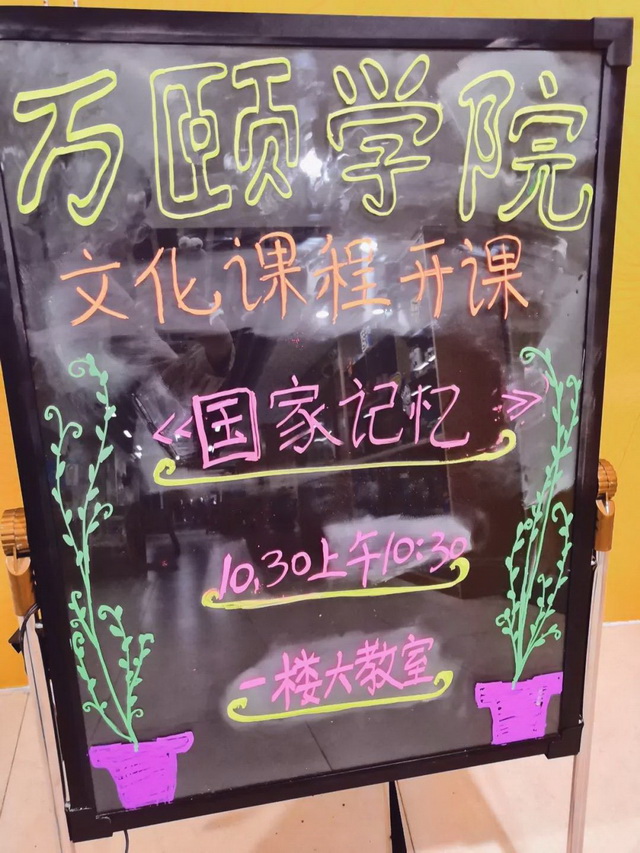 万颐学院
文化课程开课
《国家记忆》
10.30上午10:30
一楼大教室